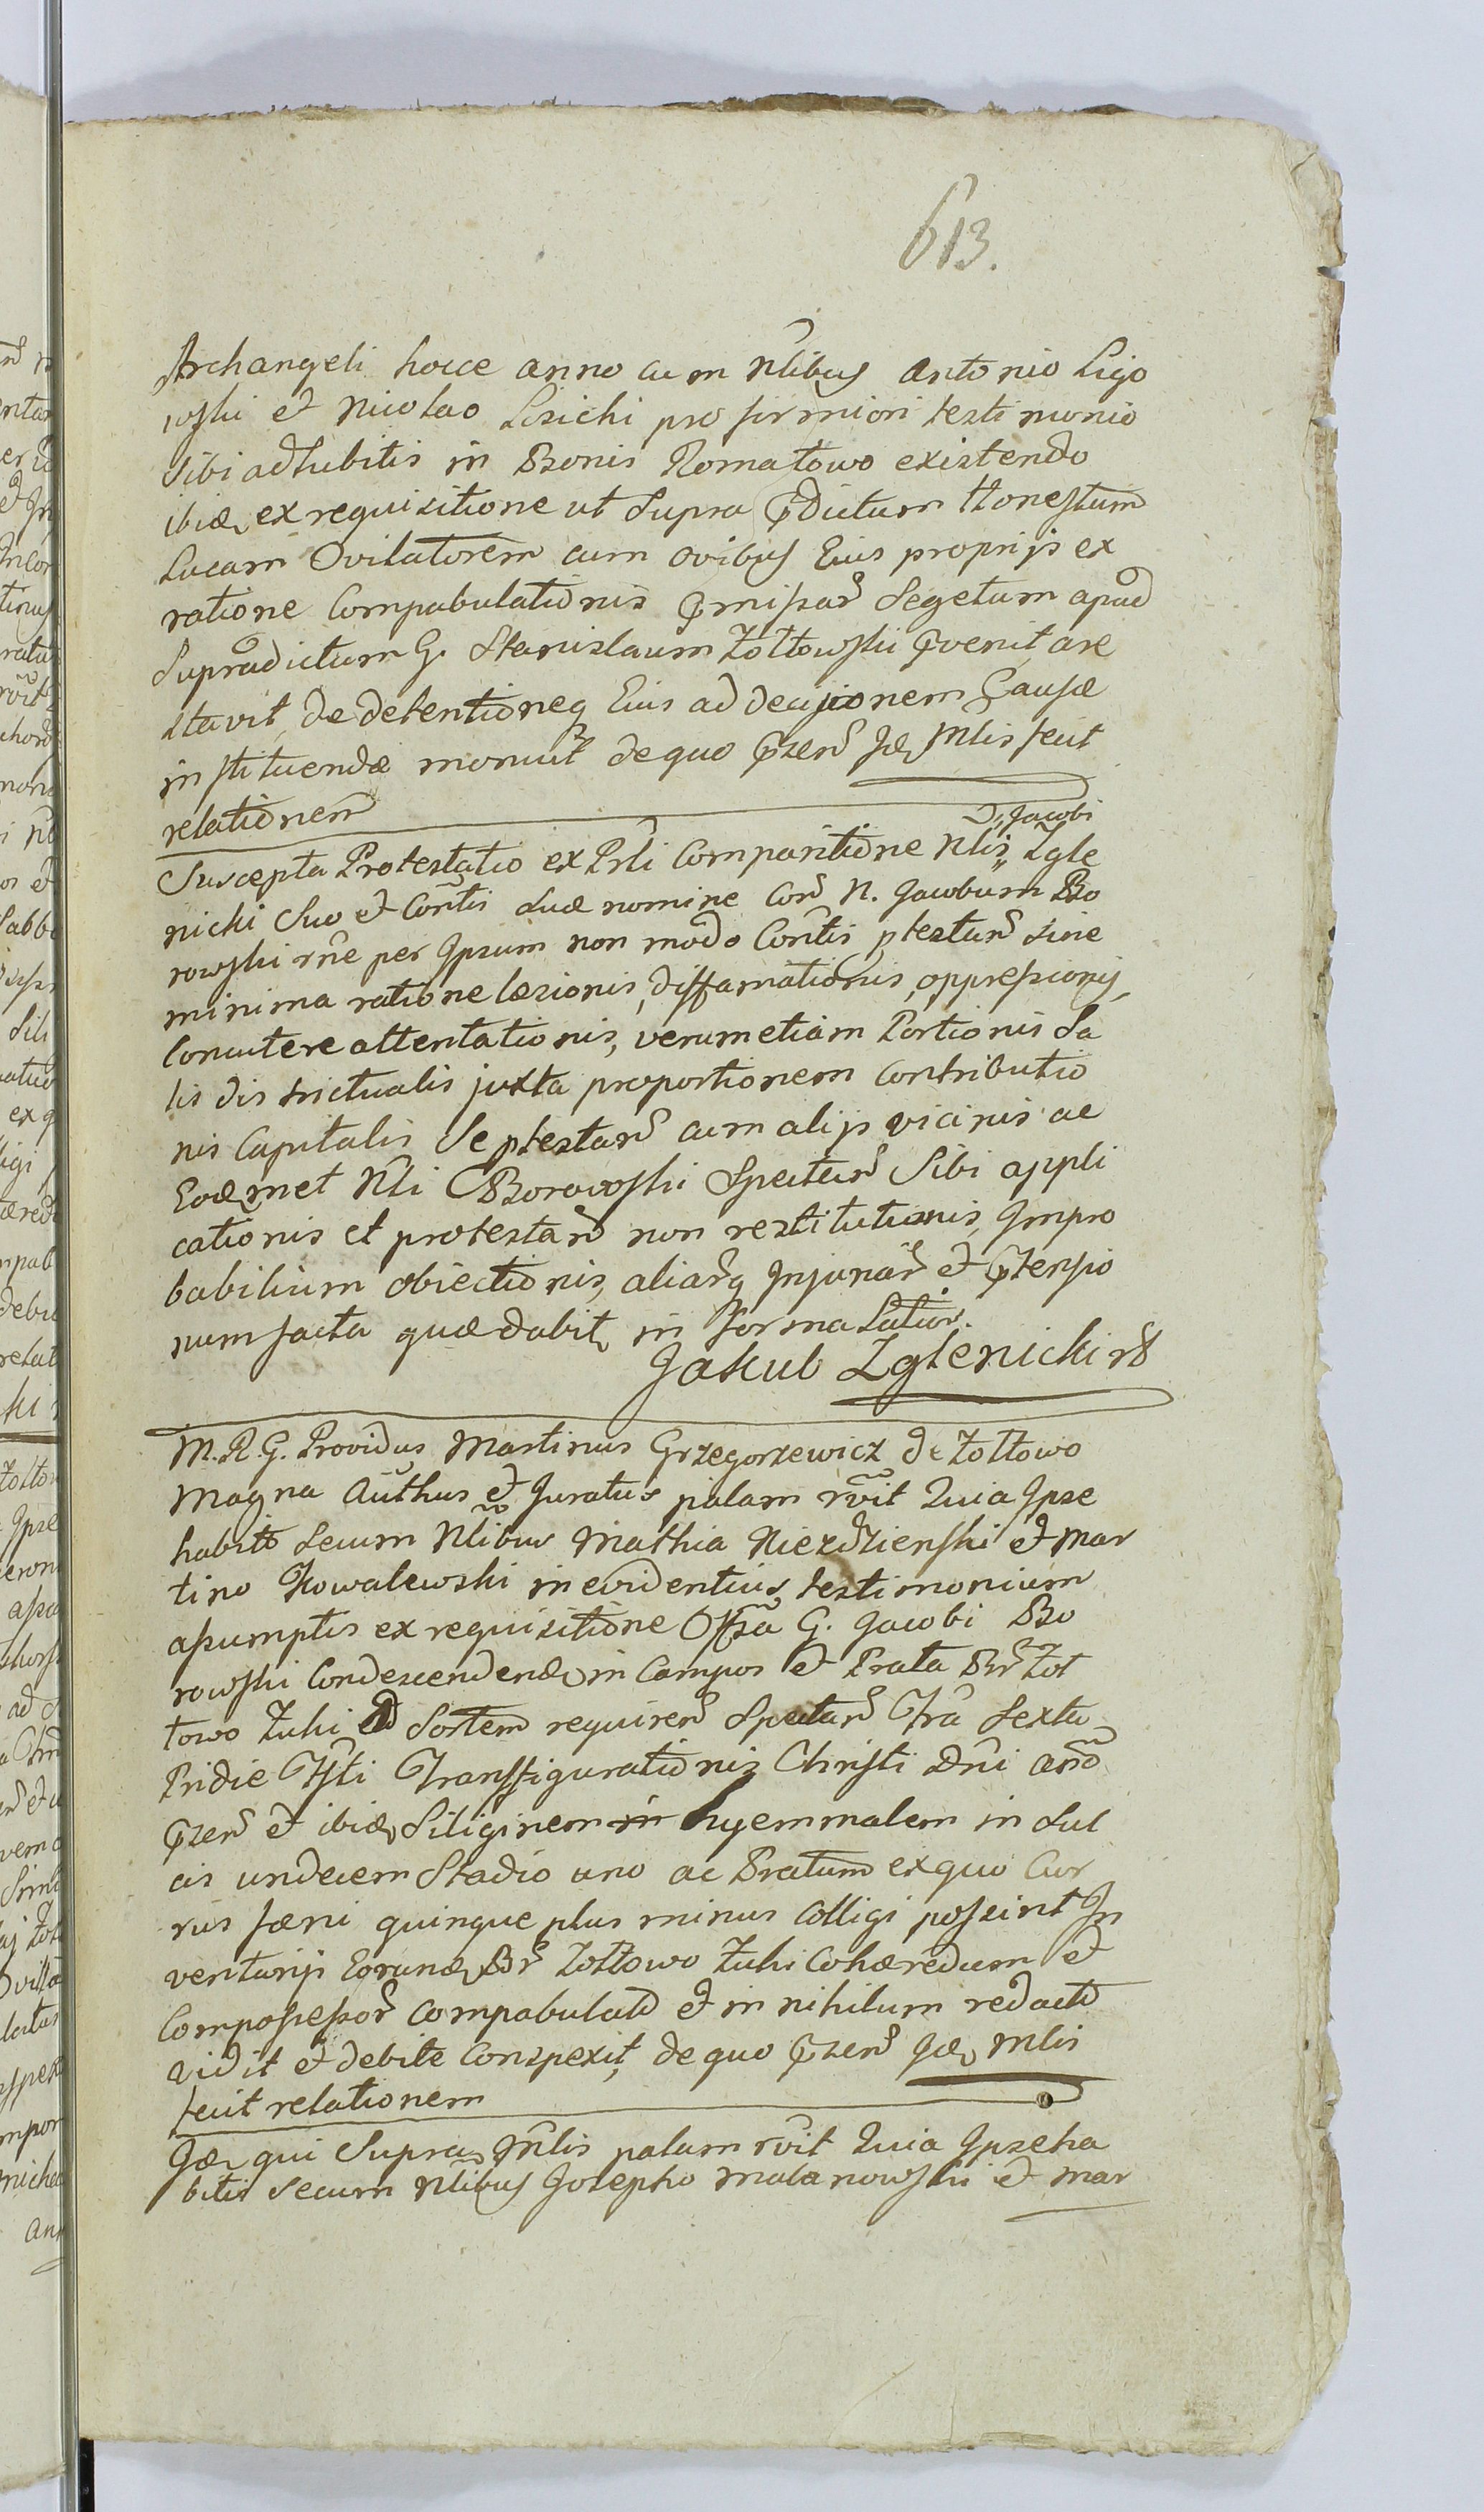 613.
Archangeli hocce anno cum Nlibus Antonio Ligo
wski et Nicolao Lisicki pro firmiori testimonio
Sibi adhibitis in Bonis Romatowo existendo
ibidē ex requisitione ut Supra p̄dictum Honestum
Lucam Ovilatorem cum ovibus Eius proprijs ex
ratione Compabulationis p̄missar̄ Segetum apud
Supradictum G. Stanislaum Żołtowski p̄venit, are
stavit, de detentioneq Eius ad decisionem Causæ
instituendæ monuit de quo p̄sen̄ Id̄ Mlis fecit
relationem
Suscepta Protestatio ex Prli Comparitione Nlis D. Jacobi Zgle
nicki Suo et Con̄tis Suæ nomine Con̄ N. Jacobum Bo
rowski rn̄e per Ipsum non modo Con̄tis ptestan̄ sine
minima ratione læsionis, diffamationis, oppressionis,
Concutere attentationis, verum etiam Portionis Sa
lis districtualis juxta proportionem Contributio
nis Capitalis Se ptestan̄ cum alijs vicinis ac
Eidemmet Nli Borowski Spectan̄ Sibi appli
cationis et protestan̄ non restitutionis, Impro
babilium obiectionis, aliarq̄ Injuriar̄ et p̄tensio
num facta quæ dabit̄ in forma Latior.
Jakub Zglenicki
M. R. G. Providus Martinus Grzegorzewicz de Żołtowo
Magna Authus et Juratus palam rvit Quia Ipse
habitis Secum Nlibus Mathia Niezdzienski et Mar
tino Kowalewski in evidentius testimonium
assumptis ex requisitione Offsa G. Jacobi Bo
rowski Condescenden̄ in Campos et Prata Bn̄r Żoł
towo Żuki ad Sortem requiren̄ Spectan̄ Fria Sexta
Pridie Fsti Transfigurationis Christi Dni anno
p̄sen̄ et ibidē Siliginem hyemmalem in Sul
cis undecem Stadio uno ac Pratum ex quo Cur
rus fæni quinque plus minus Colligi possint In
ventarij Eorund̄ Bn̄r Żołtowo Żuki Cohæredum et
Compossessor̄ Compabulatū et in nihilum redactū
vidit et debite Conspexit, de quo p̄sen̄ Id̄ Mlis
fecit relationem
Id̄ qui Supra Mnlis palam rvit Quia Ipse ha
bitis Secum Nlibus Josepho Malanowski et Mar